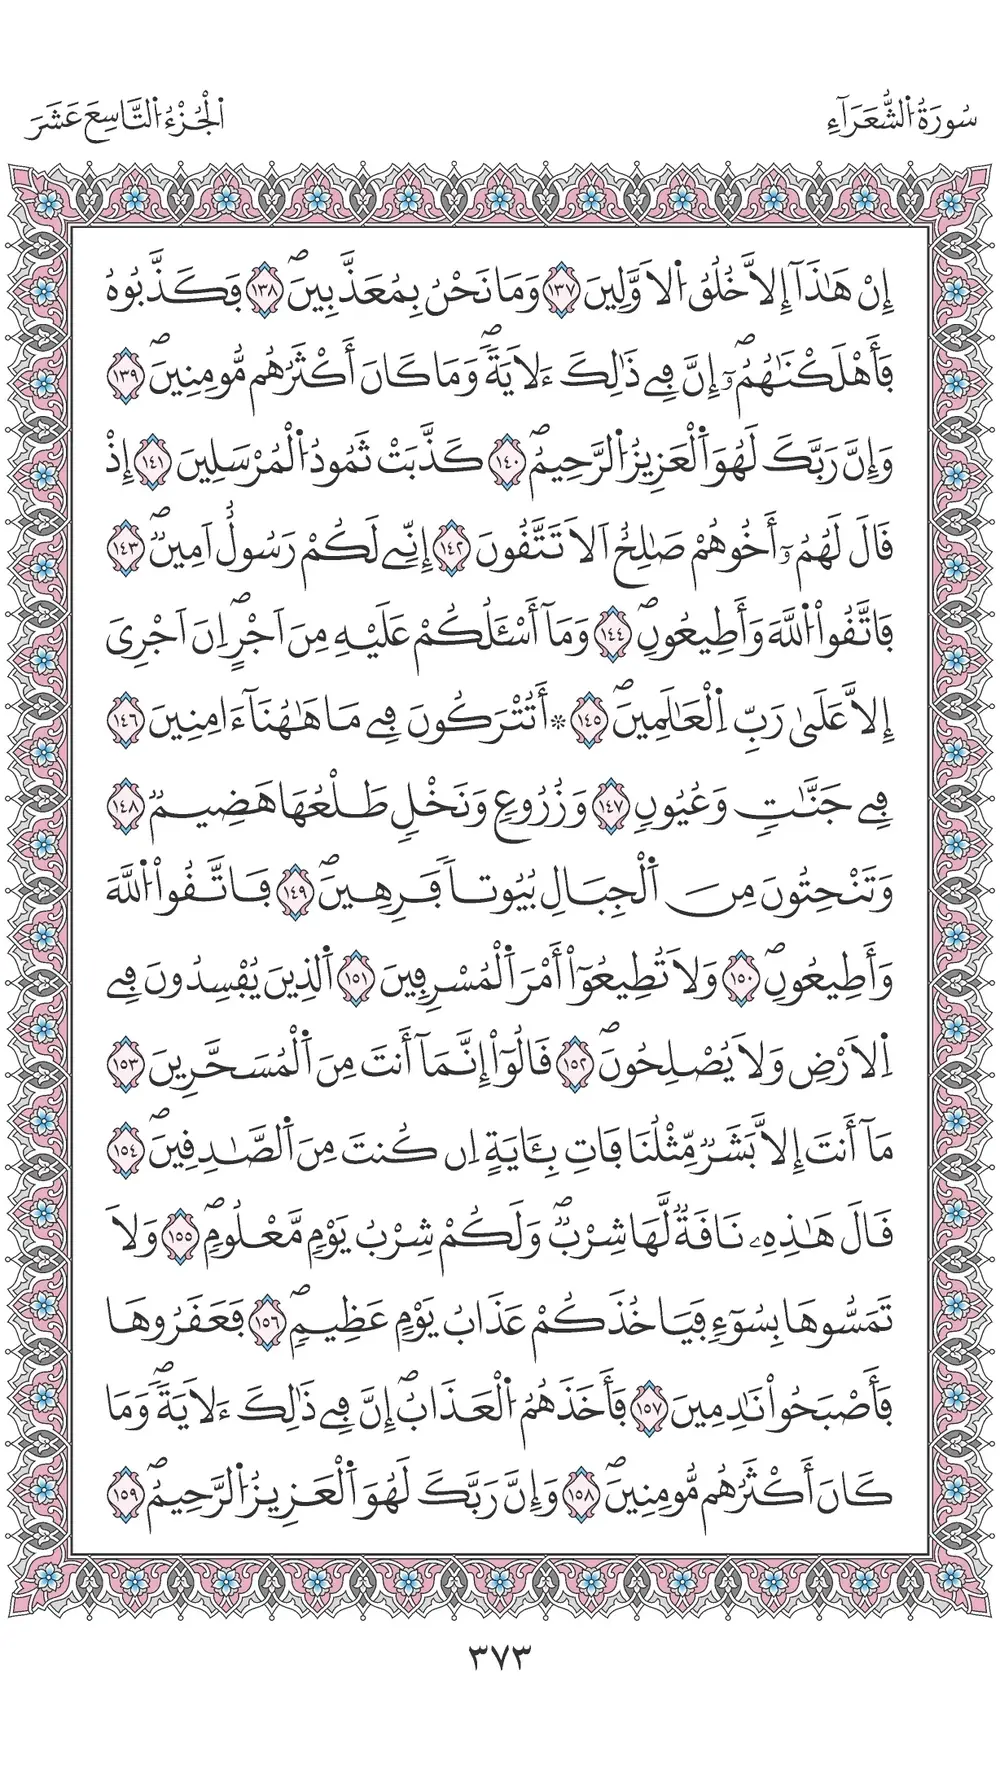 سُورَةُ اُ۬لشُّعَرَآءِ
اَ۬لْجُزْءُ اُ۬لتَّاسِعَ عَشَرَ
إِنْ هَٰذَآ إِلَّا خُلُقُ اُ۬لَاوَّلِينَ ١٣٧ وَمَا نَحْنُ بِمُعَذَّبِينَۖ ١٣٨ فَكَذَّبُوهُ
فَأَهْلَكْنَٰهُمُۥٓۖ إِنَّ فِے ذَٰلِكَ ءَلَايَةٗۖ وَمَا كَانَ أَكْثَرُهُم مُّومِنِينَۖ ١٣٩
وَإِنَّ رَبَّكَ لَهُوَ اَ۬لْعَزِيزُ اُ۬لرَّحِيمُۖ ١٤٠ كَذَّبَتْ ثَمُودُ اُ۬لْمُرْسَلِينَ ١٤١ إِذْ
قَالَ لَهُمُۥٓ أَخُوهُمْ صَٰلِحٌ اَلَا تَتَّقُونَ ١٤٢ إِنِّے لَكُمْ رَسُولٌ اَمِينٞۖ ١٤٣
فَاتَّقُواْ اُ۬للَّهَ وَأَطِيعُونِۖ ١٤٤ وَمَآ أَسْـَٔلُكُمْ عَلَيْهِ مِنَ اَجْرٍۖ اِنَ اَجْرِيَ
إِلَّا عَلَىٰ رَبِّ اِ۬لْعَٰلَمِينَۖ ١٤٥ ۞ أَتُتْرَكُونَ فِے مَا هَٰهُنَآ ءَامِنِينَ ١٤٦
فِے جَنَّٰتٖ وَعُيُونٖ ١٤٧ وَزُرُوعٖ وَنَخْلٖ طَلْعُهَا هَضِيمٞ ١٤٨
وَتَنْحِتُونَ مِنَ اَ۬لْجِبَالِ بُيُوتاٗ فَرِهِينَۖ ١٤٩ فَاتَّقُواْ اُ۬للَّهَ
وَأَطِيعُونِۖ ١٥٠ وَلَا تُطِيعُوٓاْ أَمْرَ اَ۬لْمُسْرِفِينَ ١٥١ اَ۬لذِينَ يُفْسِدُونَ فِے
اِ۬لَارْضِ وَلَا يُصْلِحُونَۖ ١٥٢ قَالُوٓاْ إِنَّمَآ أَنتَ مِنَ اَ۬لْمُسَحَّرِينَ ١٥٣
مَآ أَنتَ إِلَّا بَشَرٞ مِّثْلُنَا فَاتِ بِـَٔايَةٍ اِن كُنتَ مِنَ اَ۬لصَّٰدِقِينَۖ ١٥٤
قَالَ هَٰذِهِۦ نَاقَةٞ لَّهَا شِرْبٞۖ وَلَكُمْ شِرْبُ يَوْمٖ مَّعْلُومٖۖ ١٥٥ وَلَا
تَمَسُّوهَا بِسُوٓءٖ فَيَاخُذَكُمْ عَذَابُ يَوْمٍ عَظِيمٖۖ ١٥٦ فَعَقَرُوهَا
فَأَصْبَحُواْ نَٰدِمِينَ ١٥٧ فَأَخَذَهُمُ اُ۬لْعَذَابُۖ إِنَّ فِے ذَٰلِكَ ءَلَايَةٗۖ وَمَا
كَانَ أَكْثَرُهُم مُّومِنِينَۖ ١٥٨ وَإِنَّ رَبَّكَ لَهُوَ اَ۬لْعَزِيزُ اُ۬لرَّحِيمُۖ ١٥٩
٣٧٣